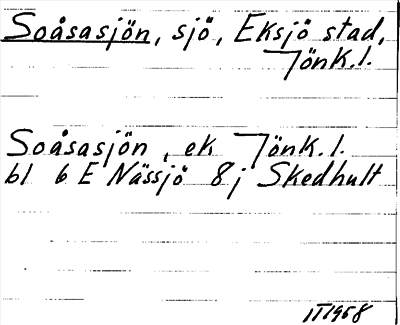 Soåsasjön, sjö, Eksjö stad,
Jönk.l.
Soåsasjön, ek Jönk.l.
bl 6 E Nässjö 8 j Skedhult
IT1958